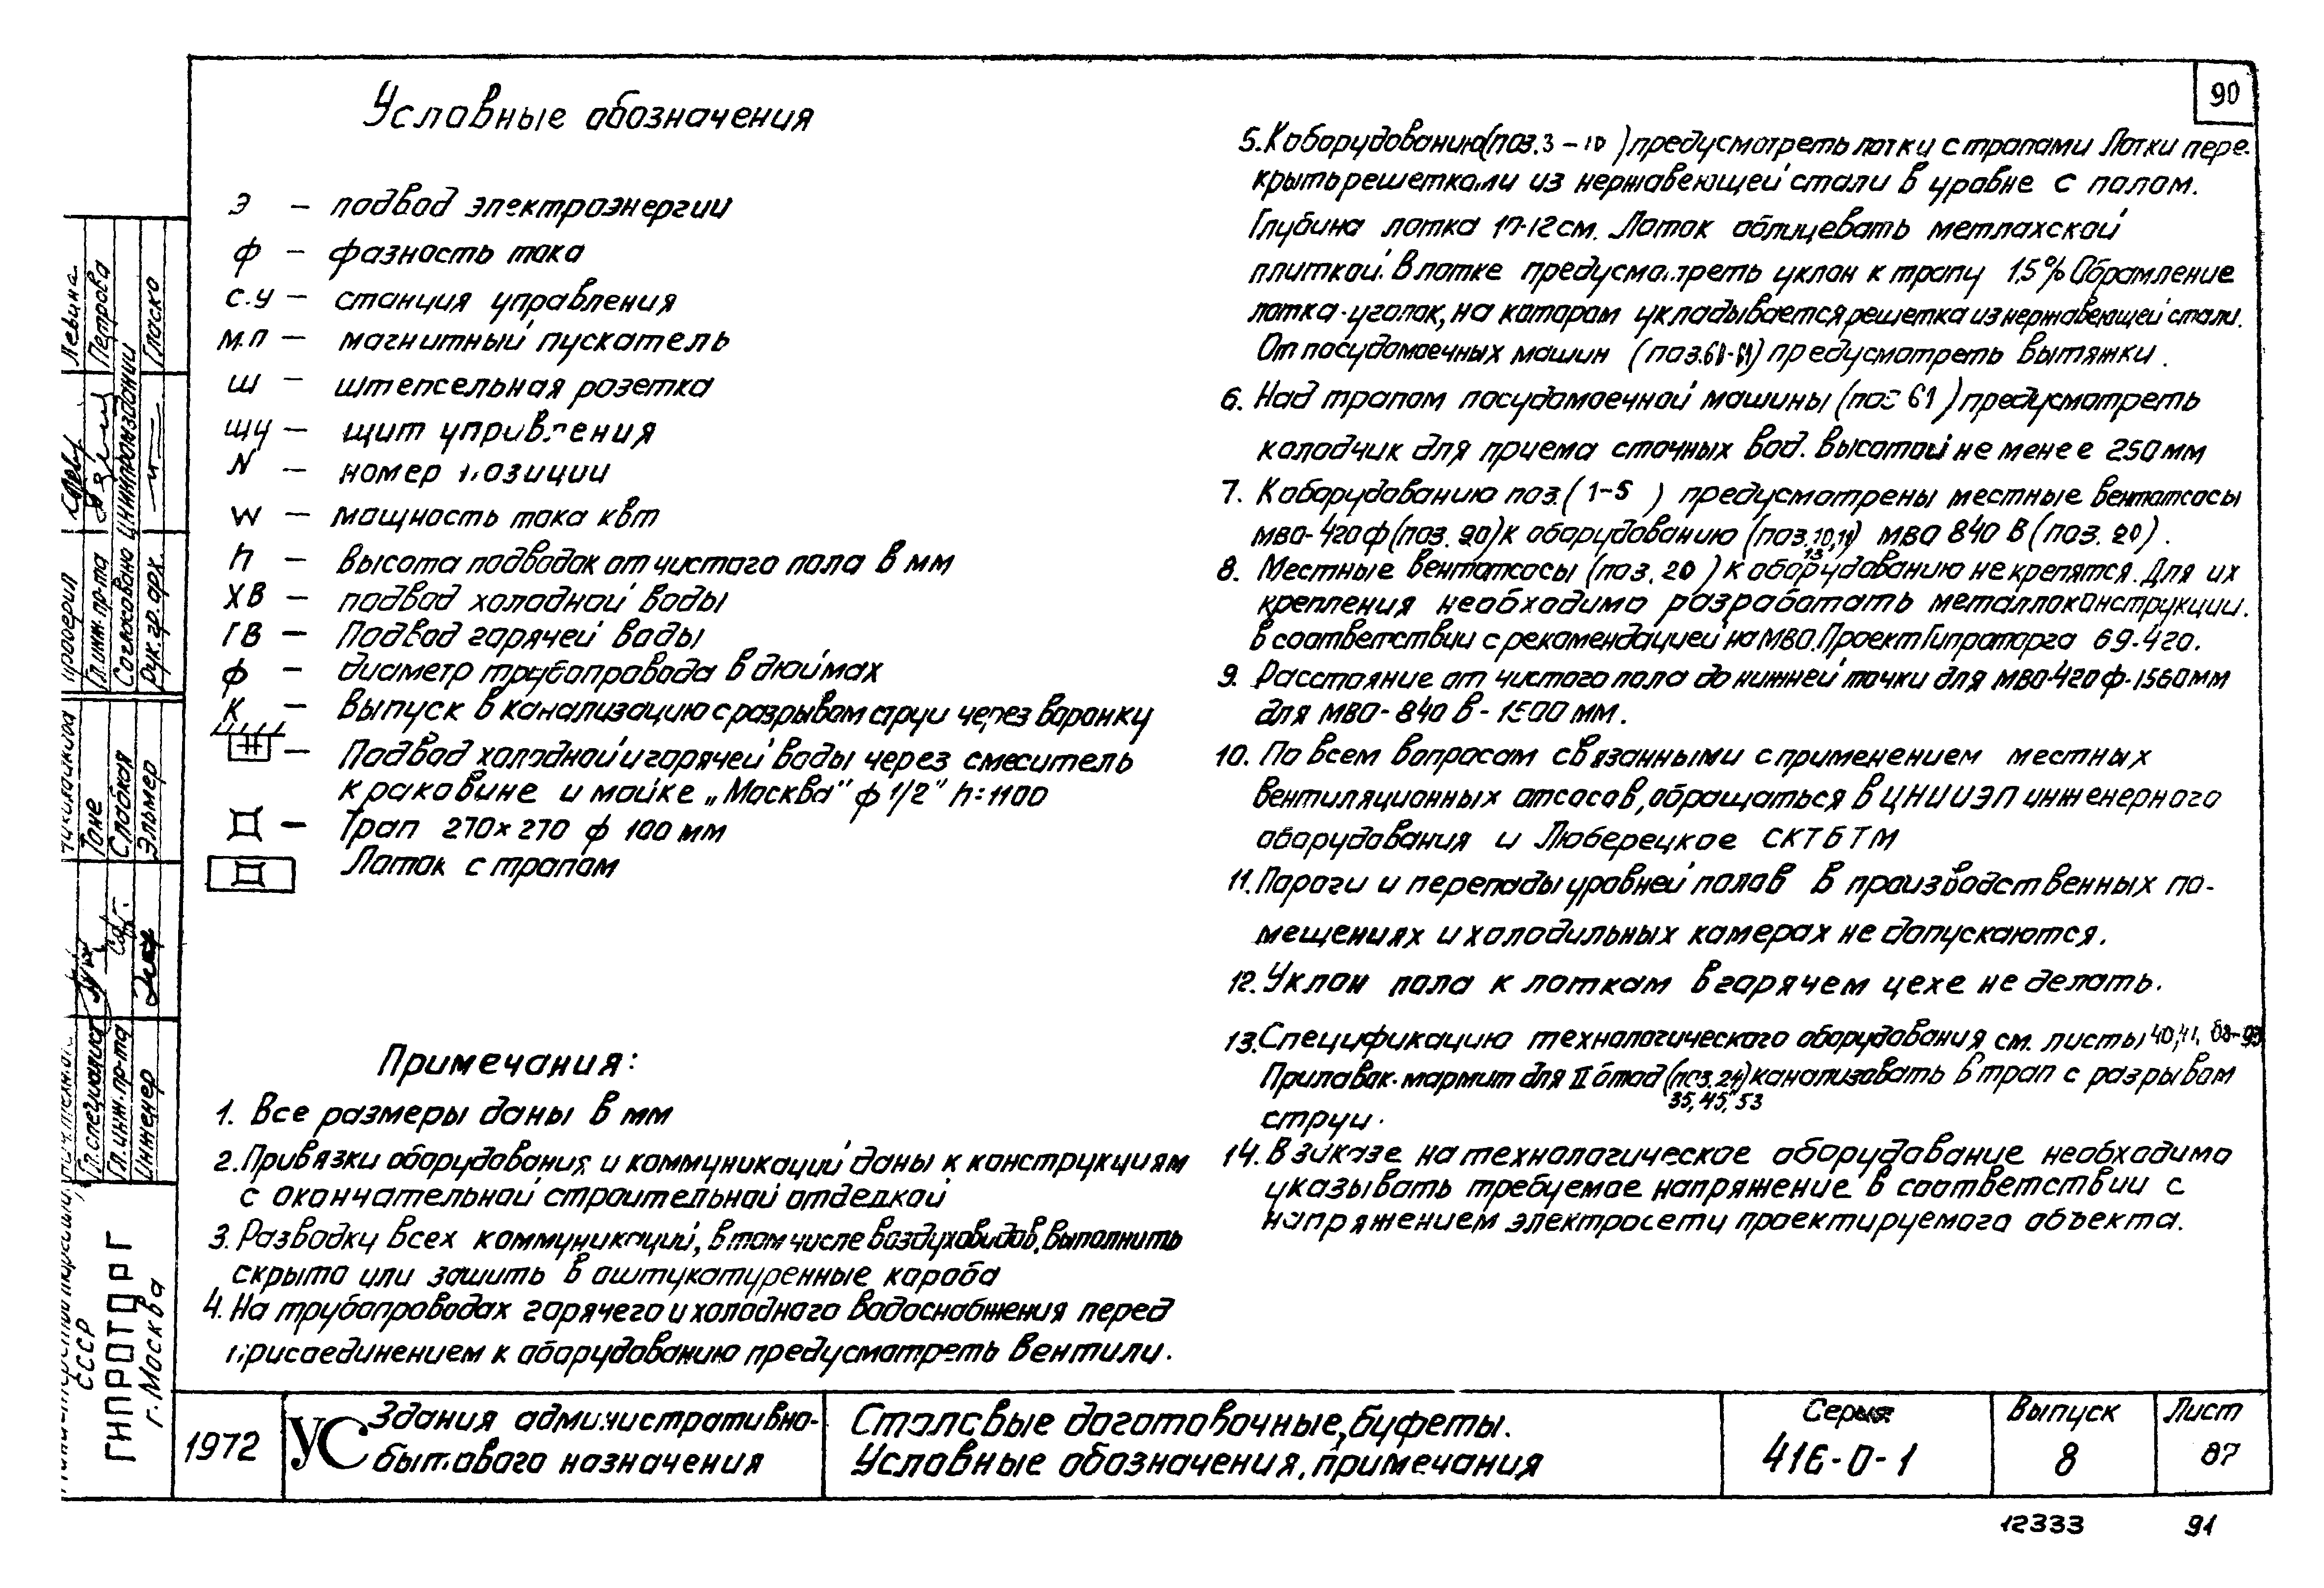 90
Условные обозначения
Э – подвод электроэнергии
ф – фазность тока
С.У – станция управления
М.П – магнитный пускатель
Ш – штепсельная розетка
ЩУ – щит управления
N – номер позиции
W – мощность тока квт
h – высота подводок от чистого пола в мм
ХВ – подвод холодной воды
ГВ – Подвод горячей воды
ф – диаметр трубопровода в дюймах
К – Выпуск в канализацию с разрывом струи через воронку
– Подвод холодной и горячей воды через смеситель
к раковине и мойке „Москва" ф 1/2" h=1100
– Трап 270×270 ф 100 мм
Лоток с трапом
Примечания:
1. Все размеры даны в мм
2. Привязки оборудования и коммуникаций даны к конструкциям
с окончательной строительной отделкой
3. Разводку всех коммуникаций, в том числе воздуховодов, выполнить
скрыто или зашить в оштукатуренные короба
4. На трубопроводах горячего и холодного водоснабжения перед
присоединением к оборудованию предусмотреть вентили.
5. К оборудованию (поз. 3 – 10) предусмотреть лотки с трапами Лотки пере-
крыть решетками из нержавеющей стали в уровне с полом.
Глубина лотка 10-12 см. Лоток облицевать метлахской
плиткой. В лотке предусмотреть уклон к трапу 1,5% Обрамление
лотка-уголок, на котором укладывается решетка из нержавеющей стали.
От посудомоечных машин (поз. предусмотреть вытяжки.
6. Над трапом посудомоечной машины (поз 61) предусмотреть
колодчик для приема сточных вод. высотой не менее 250 мм
7. К оборудованию поз. (1-5) предусмотрены местные вентотсосы
МВО-420ф (поз. 20) к оборудованию (поз. 10,11, 13) МВО 840 В (поз. 20).
8. Местные вентотсосы (поз. 20) к оборудованию не крепятся. Для их
крепления необходимо разработать металлоконструкции.
в соответствии с рекомендацией на МВО. Проект Гипроторга 69-420.
9. Расстояние от чистого пола до нижней точки для МВО-420ф-1560мм
для МВО-840 В - 1500 мм.
10. По всем вопросам связанными с применением местных
вентиляционных отсосов, обращаться в ЦНИИЭП инженерного
оборудования и Люберецкое СКТБТМ
11. Пороги и перепады уровней полов в производственных по-
мещениях и холодильных камерах не допускаются.
12. Уклон пола к лоткам в горячем цехе не делать.
13. Спецификацию технологического оборудования см. листы 40,41, 88-93
Прилавок-мармит для II блюд (поз. 24, 35, 45, 53) канализовать в трап с разрывом
струи.
14. В заказе на технологическое оборудование необходимо
указывать требуемое напряжение в соответствии с
напряжением электросети проектируемого объекта.
проверил Левина
Гл.инж.пр-та Петрова
Согласовано ЦНИИпромзданий
Рук.гр.арх. Гласко
Тоне
Слабкая
Эльмер
Гл.специалист
Гл.инж.пр-та
Инженер
СССР
ГИПРОТОРГ
г. Москва
1972
УС
Здания административно-
бытового назначения
Столовые доготовочные, буфеты.
Условные обозначения, примечания
Серия
416-0-1
Выпуск
8
Лист
87
12333
91